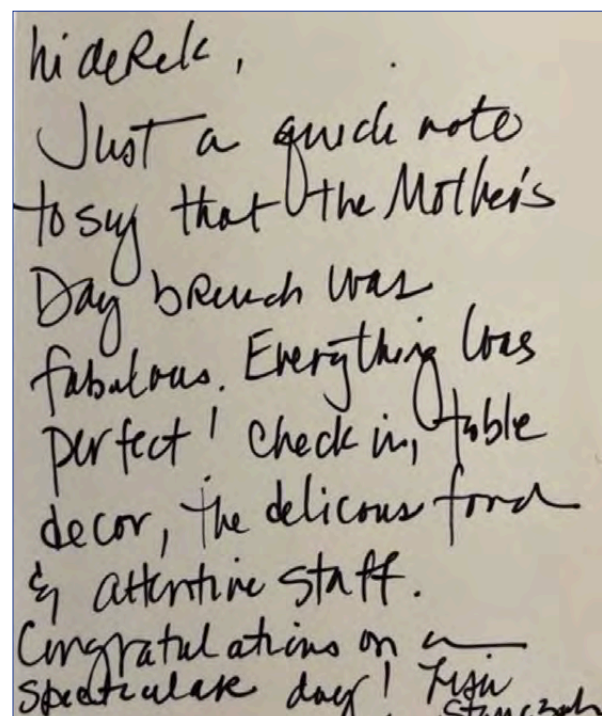 hi deRek,
Just a quick note
to say that the Mother's
Day bRunch was
fabulous. Everything was
perfect! Check in, table
decor, the delicous food
& attentive staff.
Congratulations on a
spectacular day!